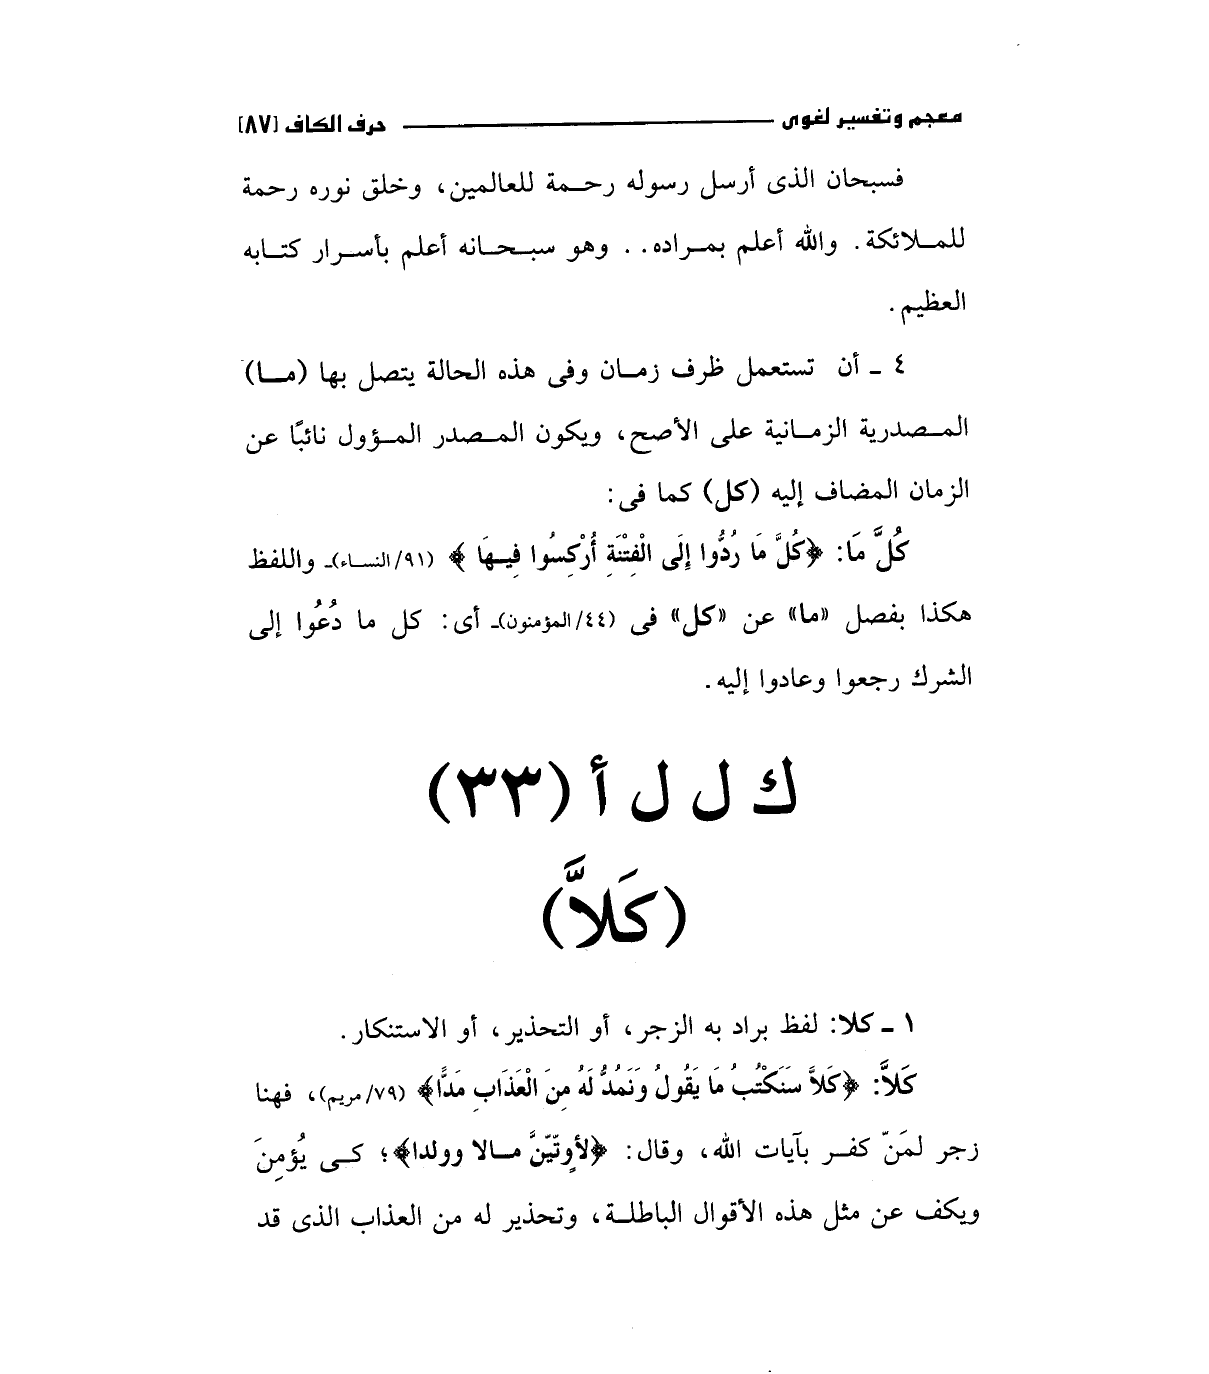 معجم وتفسير لغوى حرف الكاف [٨٧]
فسبحان الذى أرسل رسوله رحمة للعالمين، وخلق نوره رحمة
للملائكة. والله أعلم بمراده.. وهو سبحانه أعلم بأسرار كتابه
العظيم.
٤ ـ أن تستعمل ظرف زمان وفى هذه الحالة يتصل بها (ما)
المصدرية الزمانية على الأصح، ويكون المصدر المؤول نائبًا عن
الزمان المضاف إليه (كل) كما فى:
كُلَّ مَا: ﴿كُلَّ مَا رُدُّوا إِلَى الْفِتْنَةِ أُرْكِسُوا فِيهَا﴾ (٩١/النساء)ـ واللفظ
هكذا بفصل «ما» عن «كل» فى (٤٤/المؤمنون)ـ أى: كل ما دُعُوا إلى
الشرك رجعوا وعادوا إليه.
ك ل ل أ (٣٣)
(كَلاَّ)
١ ـ كلا: لفظ براد به الزجر، أو التحذير، أو الاستنكار.
كَلاَّ: ﴿كَلاَّ سَنَكْتُبُ مَا يَقُولُ وَنَمُدُّ لَهُ مِنَ الْعَذَابِ مَدًّا﴾ (٧٩/مريم)، فهنا
زجر لمَنّ كفر بآيات الله، وقال: ﴿لأوتّيّنَّ مالا وولدا﴾؛ كى يُؤمِنَ
ويكف عن مثل هذه الأقوال الباطلة، وتحذير له من العذاب الذى قد